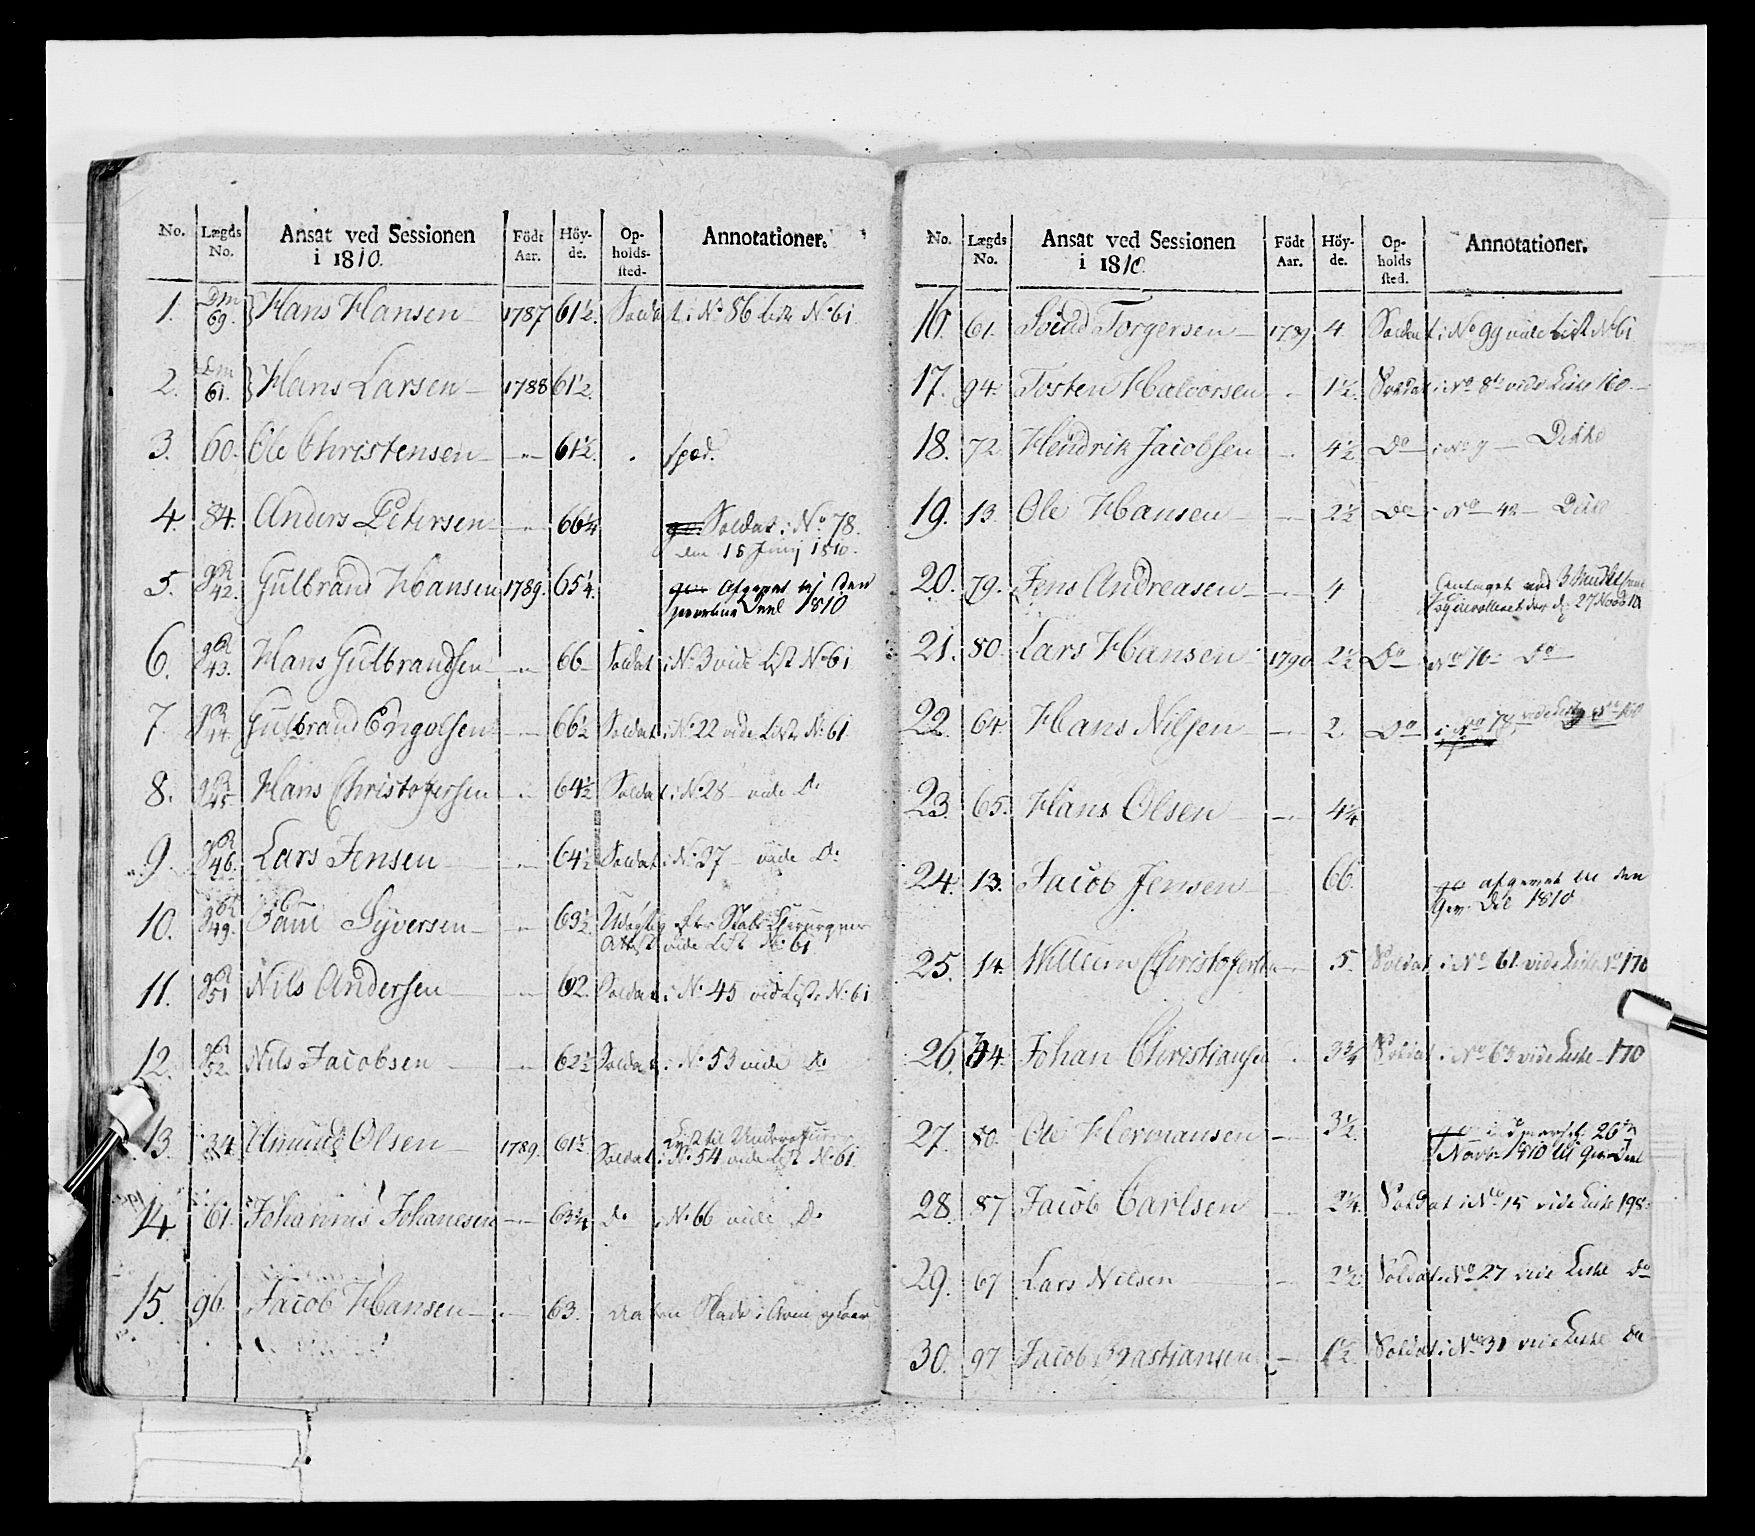 No. Lægds No. Ansat ved Sessionen i 1810. Födt Aar. Höy-de. Op-holds-sted. Annotationer.
1. Dm 69. Hans Hansen 1787 61½. Soldat i No 86 Liste No 61
2. Dm 61. Hans Larsen 1788 61½.
3. 60. Ole Christensen 61½. sped.
4. 84. Anders Petersen 66¼ Soldat i No 78.
den 15 Junij 1810.
5. 42. Gulbrand Hansen 1789. 65¼. den
1810
6. 43. Hans Gulbrandsen 66 Soldat i No 3 vide List No 61
7. 44. Gulbrand Engolfsen 66½ Soldat i No 22 vide List No 61
8. 45. Hans Christofersen 64½ Soldat i No 28 vide Do
9. 46. Lars Jensen 64½ Soldat i No 37 vide Do
10. 49. Paul Syversen 63½ Udøgtig efter Stabs Chirurgens
Attest vide List No 61
11. 51 Nils Andersen 62. Soldat i No 45 vid Liste No 61
12. 52. Nils Jacobsen 62½ Soldat i No 53 vide Do
13. 34 Amund Olsen 1789. 61½ Lyst til
Soldat i No 54 vide List No 61.
14. 61. Johannes Johanesen 63¼ do i No 66 vide Do
15. 96. Jacob Hansen 63.
No. Lægds No. Ansat ved Sessionen i 1810. Födt Aar. Höy-de. Op-holds sted. Annotationer.
16. 61. Svend Torgersen 1789 4 Soldat i No 99 vide List No 61
17. 94. Tosten Halvorsen 1½. Soldat i No 8 vide Liste 160.
18. 72 Hendrik Jacobsen 4½ Do i No 9 Ditto
19. 13. Ole Hansen 2½ Do i No 42 Ditto
20. 79. Jens Andreasen 4 Antaget ved
27 Novb 10
21. 80. Lars Hansen 1790 2½ Do No 76 Do
22. 64. Hans Nilsen 2. Do i No 78 vide Liste No 160
23. 65. Hans Olsen 4¼
24. 13. Jacob Jensen 66. afgevet til den
Gev. Del 1810
25. 14. Willum Christofersen 5. Soldat i No 61 vide Liste No 170
26. 34. Johan Christiansen 3¾ Soldat i No 63 vide Liste 170
27. 80. Ole Hermansen 3½. 26de
Novbr 1810 til Gev. Deel
28. 87 Jacob Carlsen 2¼. Soldat i No 15 vide Liste 198.
29. 67 Lars Nilsen 2½ Soldat i No 27 vide Liste Do
30. 97 Jacob Bastiansen 1½. Soldat i No 31 vide Liste Do